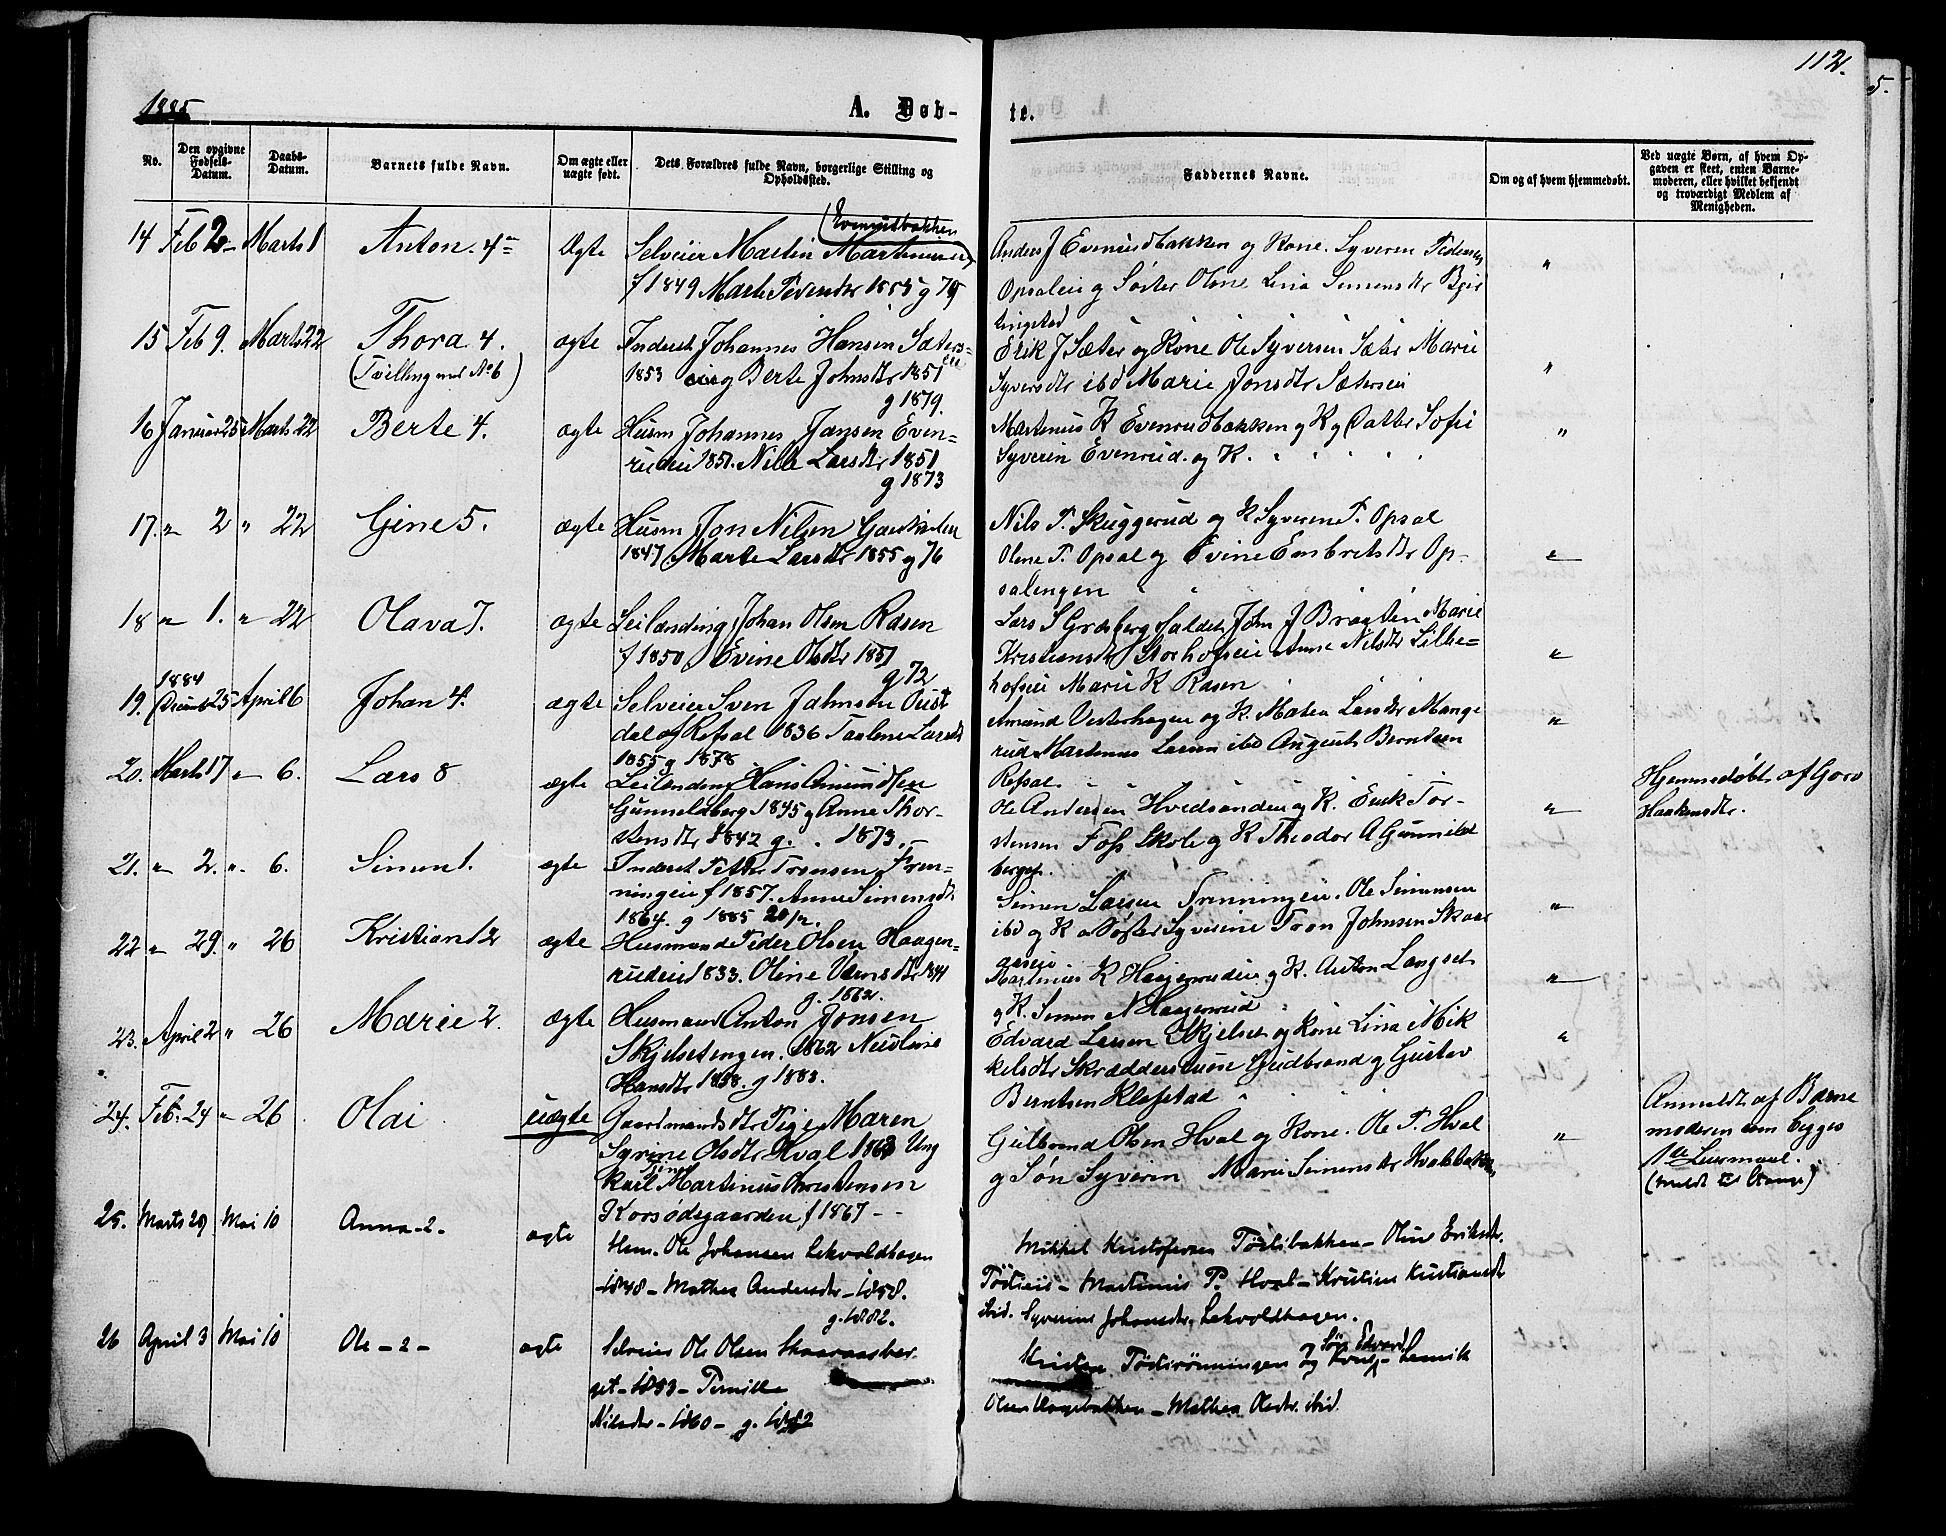 112.
5.
1885
A. Døb-
te.
No.
Den opgivne Fødsels-Datum.
Daabs-Datum.
Barnets fulde Navn.
Om ægte eller uægte født.
Dets Forældres fulde Navn, borgerlige Stilling og Opholdssted.
Faddernes Navne.
Om og af hvem hjemmedøbt.
Ved uægte Børn, af hvem Opgaven er skeet, enten Barnemoderen, eller hvilket bekjendt og troværdigt Medlem af Menigheden.
14 Feb 2 - Marts 1 Anton. 4 Ægte
(Evenrudbakken
Selveier Martin Martinusen
f 1849 Marte Pedersdtr 1855 g 79
Anders J Evenrudbakken og Kone. Syveren Pedersen
Opsaleie og Søster Oline Lina Simensdtr
15 Feb 9. Marts 22 Thora 4. ægte
(Tvilling med No 6)
Inderst Johannes Hansen Sæters-
1853 eie og Berte Johnsdtr 1851
g 1879.
Erik J Sæter og Kone Ole Syversen Sæter Marie
Syversdtr ibd Marie Jonsdtr Sæterseie
16 Januar 25 Marts 22 Berte 4. ægte
Husm Johannes Jansen Even=
rudeie 1851. Nille Larsdtr 1851
g 1873
Martinus K Evenrudbakken og K og Datter Sofie
Syverin Evenrud. og K.
17. " 2 " 22 Gine 5. ægte
Husm Jon Nilsen
1847 Marte Larsdtr 1855 g 76
Nils P. Skuggerud og K Syveren P. Opsal
Olene P. Opsal og Evine Embretsdtr Op-
salengen
18 " 1. " 22 Olava 7. ægte
Leilænding Johan Olsen Rasen
f 1850, Evine Olsdtr 1851
g 72
Lars S Grøsberg John J Bragten Marie
Kristiansdtr Storhofseie Anne Nilsdtr Lille=
hofseie Marie K Rasen
1884
19. Decemb 25 April 6 Johan 4. ægte
Selveier Sven Jahnsen Oust
dal af Refsal 1836 Taalene Larsdtr
1855 g 1878
Amund Vesterhagen og K. Matea Larsdtr Mange
rud Martinus Larsen ibd August Berntsen
Refsal.
20. Marts 17 " 6. Lars 8 ægte
Leilænding Hans Amundsen
Gunneldsberg 1845 og Anne Thor-
stensdtr 1842 g. 1873.
Ole Andersen Hvedsandeie og K. Erik Tor-
stensen Foss Skole og K Theodor A Gunnild
berget.
Hjemmedøbt af Goro
Haakensdtr.
21. " 2. " 6. Simen 1. ægte
Inderst Peter Tronsen Fren-
ningeie f 1857. Anne Simensdtr
1864. g 1885
Simen Larsen Frenningeie. Ole Simensen
ibd og K Søster Syverine Tron Johnsen Skaar
aaseie
22 " 29. " 26 Kristian 12 ægte
Husmand Peder Olsen Haagen-
rudeie 1833. Oline 1841
g. 1862.
Martinius K Haagenrudeie og K. Anton Langset
og K. Simen N Haagenrud
23. April 2 " 26 Marie 2. ægte
Husmand Anton Jonsen
Skjelsetengen. 1862 Nicoline
Hansdtr 1858. g 1883.
Edvard Larsen Skjelset og Kone Lina Mik
kelsdtr Skrædderstuen Gudbrand og Gustav
Berntsen Klofstad
24. Feb. 24 " 26 Olai uægte
Gaardmandsdtr Pige Maren
Syrine Olsdtr Hval 1863 Ung
karl Martinus Kristensen
Korsødegaarden f 1867 - -
Gulbrand Olsen Hval og Kone. Ole P. Hval
og Søn Syverin Marie Simensdtr Hvalbakken
Anmeldt af Barne
moderen som begges
1ste Leiermaal.
(meldt til Stange)
25. Marts 29 Mai 10 Anna - 2 - ægte
Hsm. Ole Johansen Lekvoldhagen
1848 - Mathea Andersdtr - 1858.
g. 1882.
Mikkel Kristofersen Tødtibakken - Oline Eriksdtr.
Tødtieie - Martinus P. Hval - Kristine Kristiansdtr
ibid. Syverine Johansdtr. Lekvoldhagen.
26 April 3 Mai 10 Ole - 2 - ægte
Selveier Ole Olsen Skaaraasber-
get - 1853 - Pernille
Nilsdtr - 1860 - g. 1882
og Søn Edvard
Kristen Tødtirønningen og Kone - Henrik
Olsen Hagebakken - Mathea Olsdtr ibid.